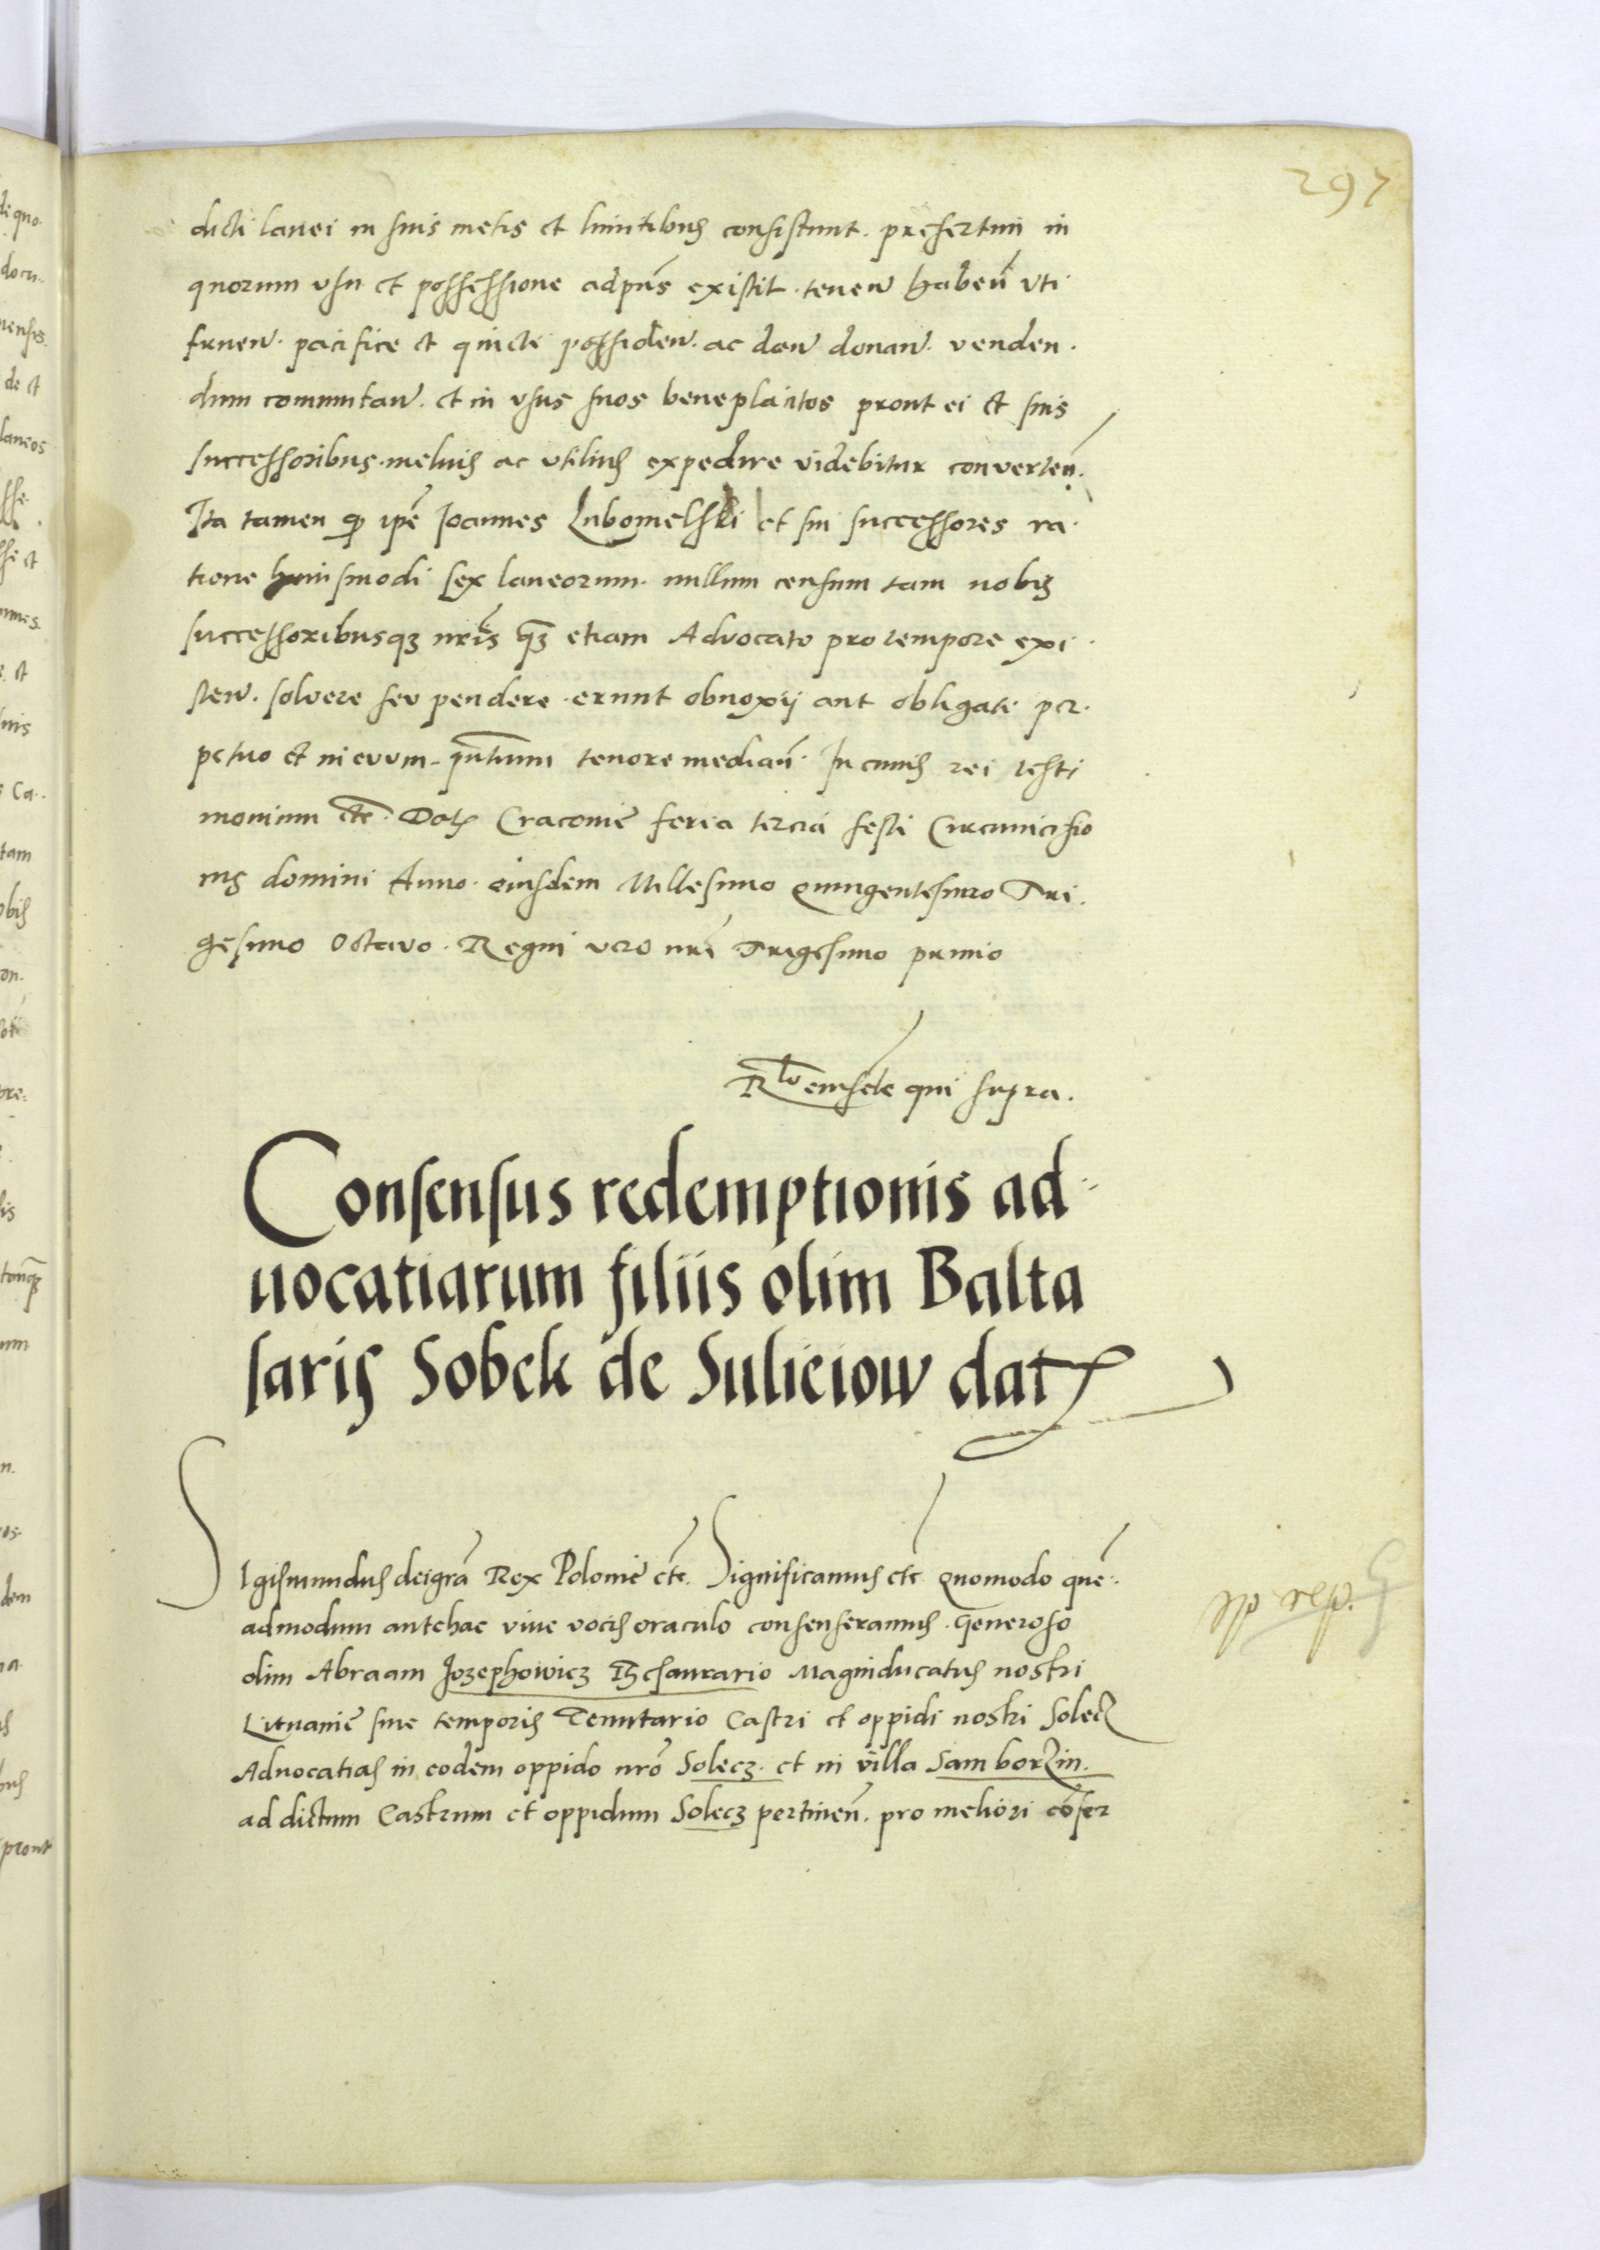 297
dicti lanei in suis metis et limitibus consistunt. presertim in
quorum usu et possessione adpñs existit. teneñ habeñ uti
frueñ. pacifice et quiete possideñ. ac dañ donañ. venden.
dum comutañ. et in usus suos beneplacitos prout ei et suis
successoribus. melius ac utilius expedire videbitur converteñ.
Ita tamen qꝫ ipē Joannes Lubomelski et sui successores ra.
tione huiusmodi sex laneorum. nullum censum tam nobis
successoribusqꝫ nrīs qꝫ etiam Advocato pro tempore exi.
steñ. solvere seu pendere. erunt obnoxij aut obligati per.
petuo et in evum. tenore mediañ. In cuius rei testi
monium etc̄. Datꝫ Cracoviē feria tercia festi Circumcisio
nis domini Anno. eiusdem Millesimo Quingentesimo Tri.
gesimo Octavo. Regni vero nrī Trigesimo primo
Rlō eiusdē qui supra.
Consensus redemptionis ad
uocatiarum filiis olim Balta
saris Sobek de Sulieiow datꝫ
Sigismundus dei grā Rex Poloniē etc̄. Significamus etc̄ Quomodo quē.
admodum antehac vive vocis oraculo consenseramus. Generoso
olim Abraam Jozephowicz Thesaurario Magniducatus nostri
Lituaniē sue temporis Tenutario Castri et oppidi nostri Solecz
Advocatias in eodem oppido nrō Solecz. et in villa Samborzin.
ad dictum Castrum et oppidum Solecz pertineñ. pro meliori cōser